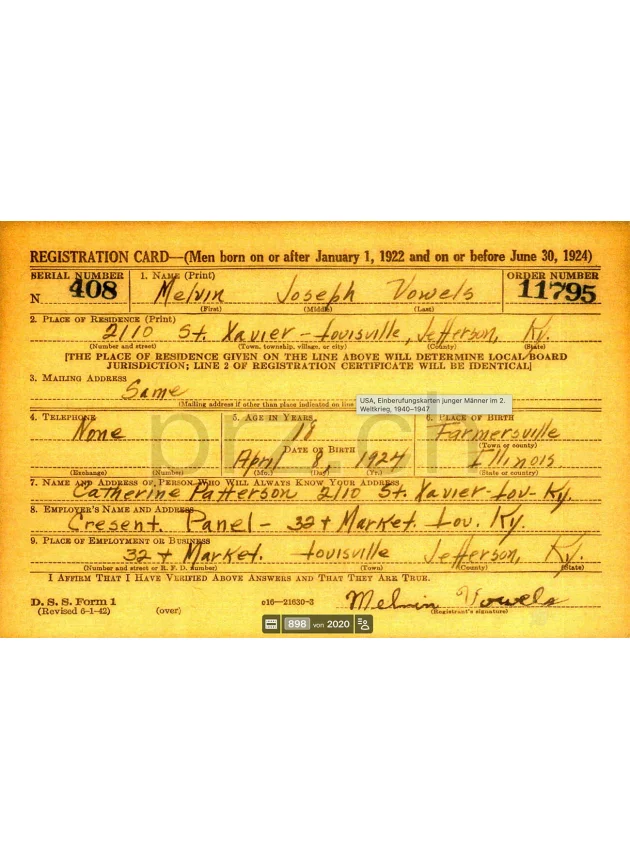 REGISTRATION CARD—(Men born on or after January 1, 1922 and on or before June 30, 1924)
SERIAL NUMBER 1. NAME (Print) ORDER NUMBER
N 408 Melvin Joseph Vowels 11795
(First) (Middle) (Last)
2. PLACE OF RESIDENCE (Print)
2110 St. Xavier - Louisville, Jefferson, Ky.
(Number and street) (Town, township, village, or city) (County) (State)
[THE PLACE OF RESIDENCE GIVEN ON THE LINE ABOVE WILL DETERMINE LOCAL BOARD
JURISDICTION; LINE 2 OF REGISTRATION CERTIFICATE WILL BE IDENTICAL]
3. MAILING ADDRESS
Same
(Mailing address if other than place indicated on line
USA, Einberufungskarten junger Männer im 2.
Weltkrieg, 1940–1947
4. TELEPHONE 5. AGE IN YEARS 6. PLACE OF BIRTH
None 18 Farmersville
(Town or county)
DATE OF BIRTH
April 8, 1924 Illinois
(Exchange) (Number) (Mo.) (Day) (Yr.) (State or country)
prz.ch
7. NAME AND ADDRESS OF PERSON WHO WILL ALWAYS KNOW YOUR ADDRESS
Catherine Patterson 2110 St. Xavier - Lou- Ky.
8. EMPLOYER'S NAME AND ADDRESS
Cresent Panel - 32 + Market. Lou. Ky.
9. PLACE OF EMPLOYMENT OR BUSINESS
32 + Market. Louisville Jefferson, Ky.
(Number and street or R. F. D. number) (Town) (County) (State)
I AFFIRM THAT I HAVE VERIFIED ABOVE ANSWERS AND THAT THEY ARE TRUE.
D. S. S. Form 1
(Revised 6-1-42) (over) c16—21630-3 Melvin Vowels
(Registrant's signature)
898 von 2020